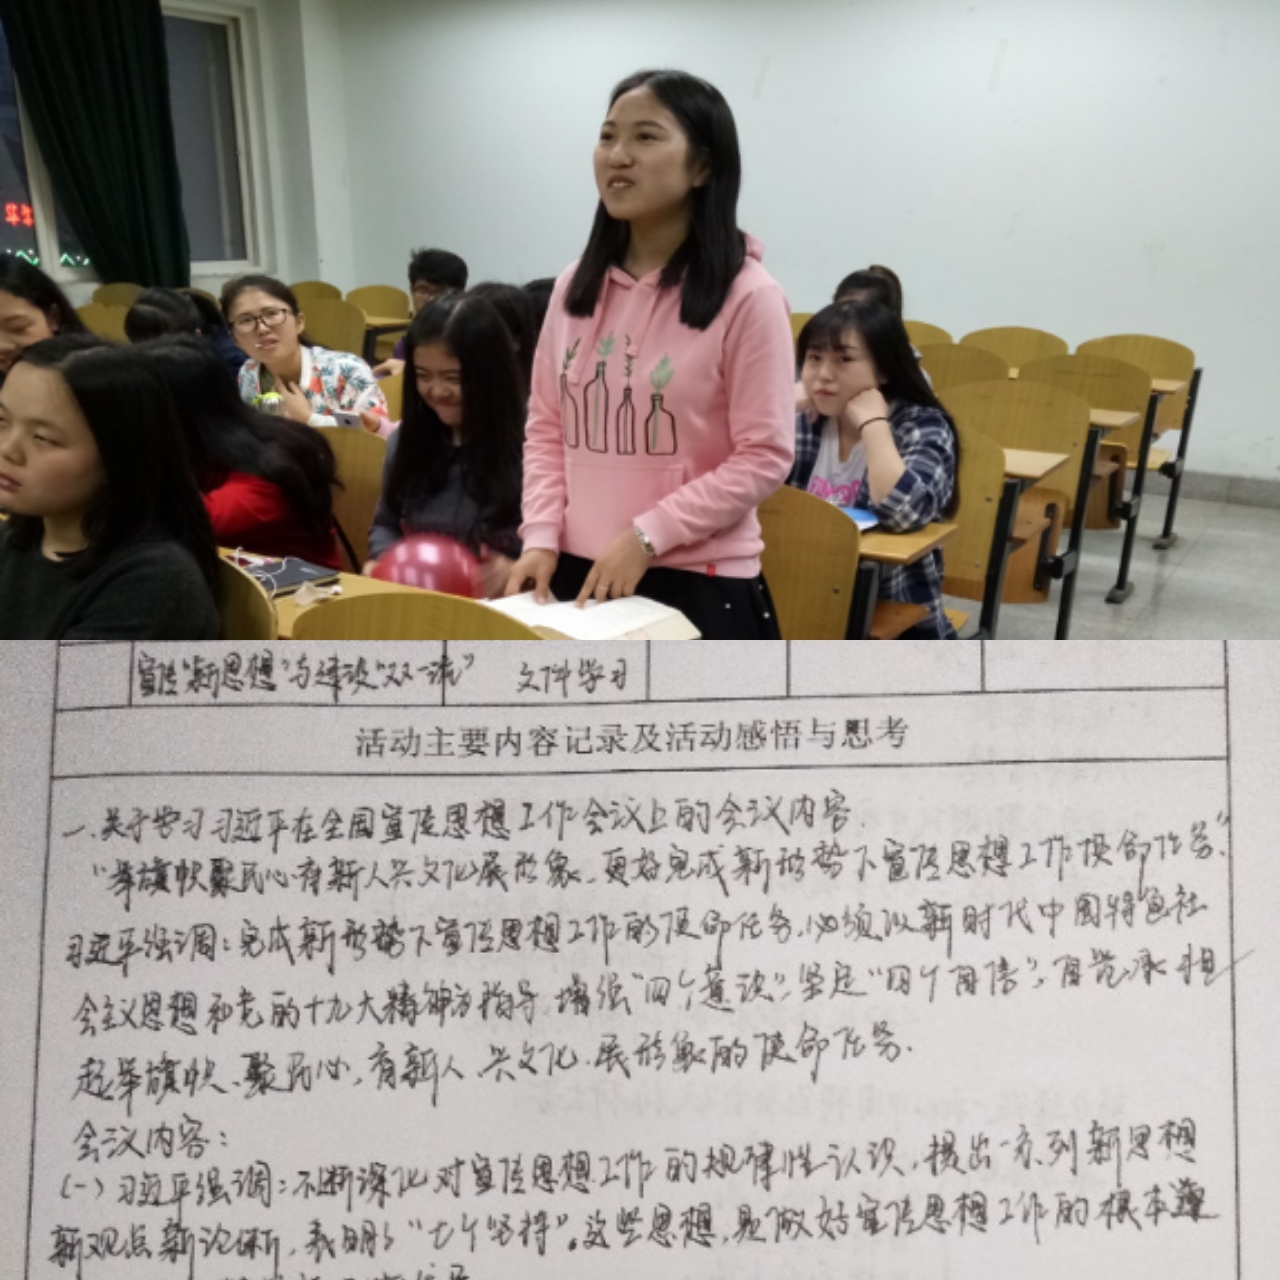 宣传“新思想”与建设“双一流” 文件学习
活动主要内容记录及活动感悟与思考
一.关于学习习近平在全国宣传思想工作会议上的会议内容.
“举旗帜聚民心育新人兴文化展形象.更好完成新形势下宣传思想工作使命任务.”
习近平强调:完成新形势下宣传思想工作的使命任务.必须以新时代中国特色社
会主义思想和党的十九大精神为指导,增强“四个意识”、坚定“四个自信”,自觉承担
起举旗帜、聚民心,育新人、兴文化.展形象的使命任务.
会议内容:
(一)习近平强调:不断深化对宣传思想工作的规律性认识,提出一系列新思想
新观点新论断,表明了“七个坚持”。这些思想,是做好宣传思想工作的根本遵